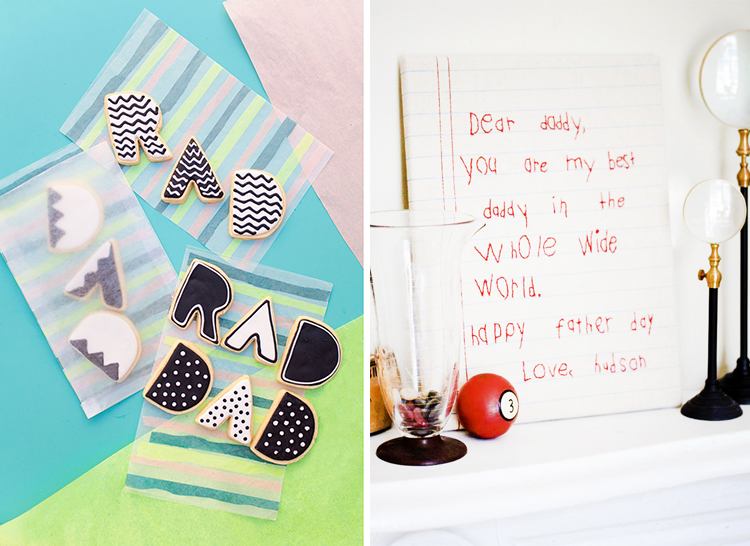 RAD
DAD
RAD
DAD
Dear daddy,
you are my best
daddy in the
whole wide
world.
happy father day
Love, hudson
3